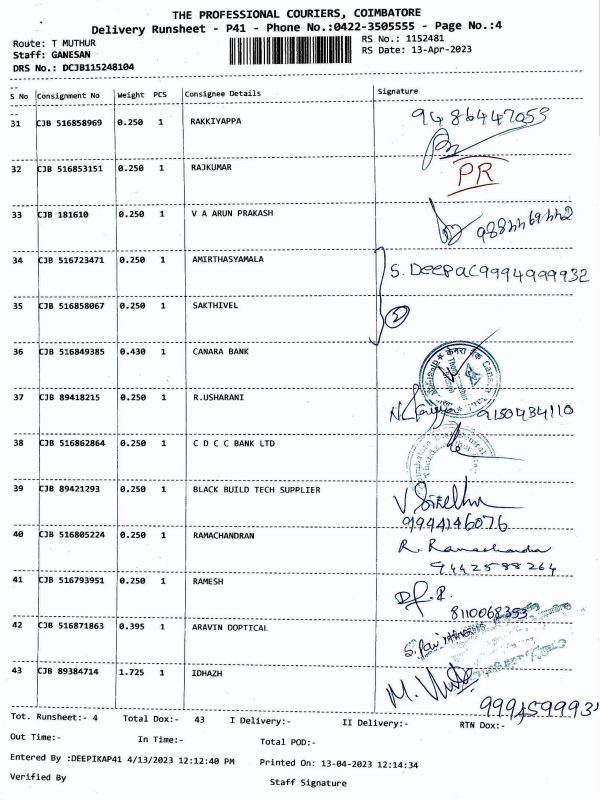 THE PROFESSIONAL COURIERS, COIMBATORE
Delivery Runsheet - P41 - Phone No.:0422-3505555 - Page No.:4
Route: T MUTHUR RS No.: 1152481
Staff: GANESAN RS Date: 13-Apr-2023
DRS No.: DCJB115248104
S No Consignment No Weight PCS Consignee Details Signature
31 CJB 516858969 0.250 1 RAKKIYAPPA 9486447053
32 CJB 516853151 0.250 1 RAJKUMAR PR
33 CJB 181610 0.250 1 V A ARUN PRAKASH 9884469442
34 CJB 516723471 0.250 1 AMIRTHASYAMALA S. DEEPAC 9994999932
35 CJB 516858067 0.250 1 SAKTHIVEL 2
36 CJB 516849385 0.430 1 CANARA BANK केनरा बैंक Canara
37 CJB 89418215 0.250 1 R.USHARANI 9150434110
38 CJB 516862864 0.250 1 C D C C BANK LTD
39 CJB 89421293 0.250 1 BLACK BUILD TECH SUPPLIER
9994146076
40 CJB 516805224 0.250 1 RAMACHANDRAN R. Ramachandra
9442588264
41 CJB 516793951 0.250 1 RAMESH
8110068353
42 CJB 516871863 0.395 1 ARAVIN DOPTICAL
43 CJB 89384714 1.725 1 IDHAZH
Tot. Runsheet:- 4 Total Dox:- 43 I Delivery:- II Delivery:- RTN Dox:-
Out Time:- In Time:- Total POD:-
Entered By :DEEPIKAP41 4/13/2023 12:12:40 PM Printed On: 13-04-2023 12:14:34
Verified By Staff Signature